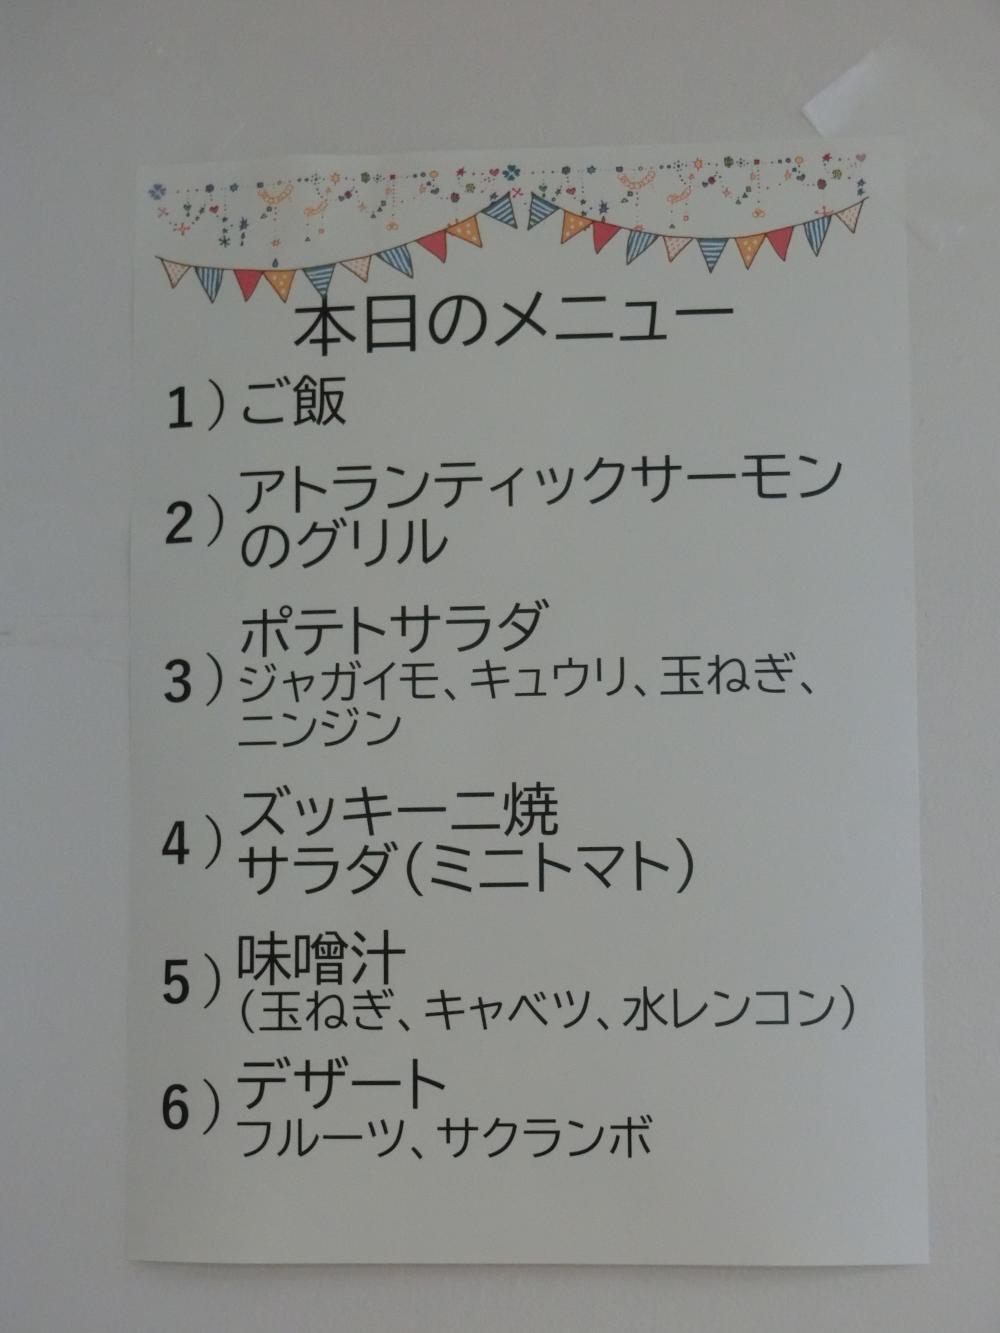 本日のメニュー
1）ご飯
2）アトランティックサーモン
のグリル
3）ポテトサラダ
ジャガイモ、キュウリ、玉ねぎ、
ニンジン
4）ズッキーニ焼
サラダ(ミニトマト)
5）味噌汁
（玉ねぎ、キャベツ、水レンコン）
6）デザート
フルーツ、サクランボ